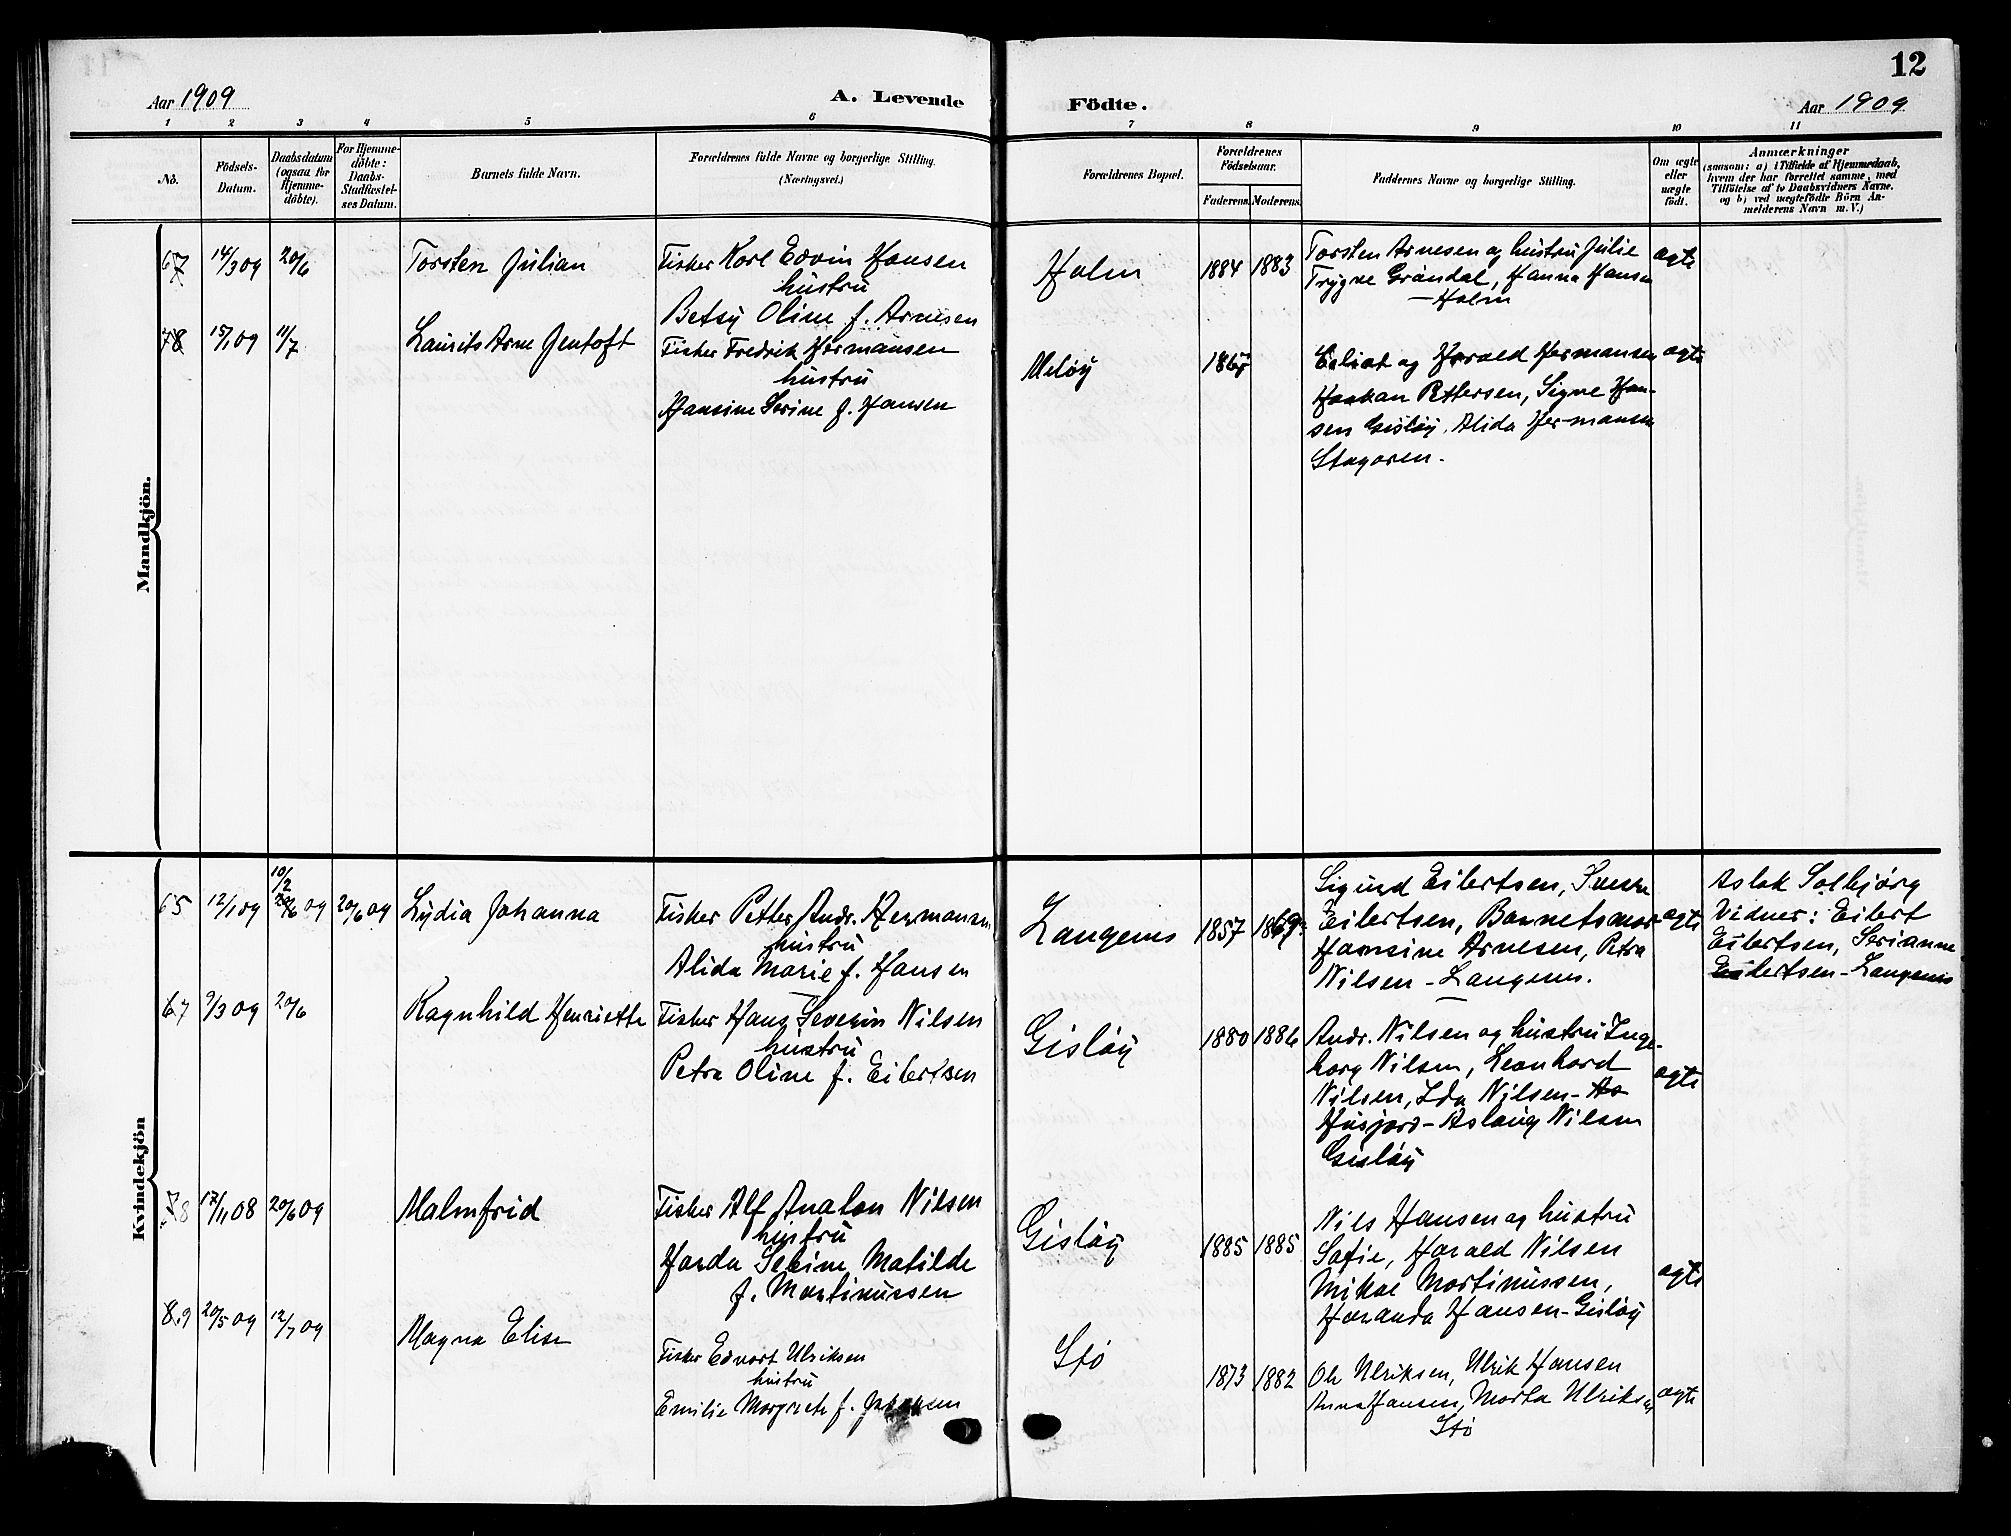 12
Aar 1909
A. Levende
Födte.
Aar 1909
1 2 3 4 5 6 7 8 9 10 11
No.
Födsels-
Datum.
Daabsdatum
(ogsaa for
Hjemme-
döbte).
For Hjemme-
döbte:
Daabs-
Stadfæstel-
ses Datum.
Barnets fulde Navn.
Forældrenes fulde Navne og borgerlige Stilling.
(Næringsvei.)
Forældrenes Bopæl.
Forældrenes
Födselsaar.
Faderens. Moderens.
Faddernes Navne og borgerlige Stilling.
Om ægte
eller
uægte
födt.
Anmærkninger
(saasom: a) i Tilfælde af Hjemmedaab,
hvem der har forrettet samme, med
Tilföielse af to Daabsvidners Navne.
og b) ved uægtefödte Börn An-
melderens Navn m. V.)
Mandkjön.
67 14/3 09 20/6 Torsten Julian
Fisker Karl Edvin Hansen
hustru
Betsy Oline f. Arnesen
Holm 1884 1883
Torsten Arnesen og hustru Julie
Trygve Gröndal, Hanna Hansen
— Holm
ægte
78 15/1 09 11/7 Laurits Arne Jentoft
Fisker Fredrik Hermansen
hustru
Hansine Serine f. Hansen
Meløy
og Harald Hermansen
Haakan Pettersen, Signe Han-
sen Gisløy, Alida Hermansen
ægte
Kvindekjön
65 12/1 09 10/2 20/6 09 20/6 09 Lydia Johanna
Fisker Petter Andr. Hermansen
hustru
Alida Marie f. Hansen
Langenes 1857 1869
Sigurd Eilertsen,
Eilertsen, Barnets mor
Hansine Arnesen, Petra
Nilsen - Langenes.
ægte
Aslak Solbjörg
Vidner: Eilert
Eilertsen, Serianne
Eilertsen - Langenes
67 9/3 09 20/6 Ragnhild Henriette
Fisker Hans Severin Nilsen
hustru
Petra Oline f. Eilertsen
Gisløy 1880 1886
Andr. Nilsen og hustru Inge-
borg Nilsen, Leonhard
Nilsen, Ida Nilsen - As
Husjord - Aslaug Nilsen
Gisløy
ægte
78 17/11 08 20/6 09 Malmfrid
Fisker Alf Analon Nilsen
hustru
Harda Sebine Matilde
f. Martinussen
Gisløy 1885 1885
Nils Hansen og hustru
Sofie, Harald Nilsen
Mikal Martinussen,
Haranda Hansen - Gisløy
ægte
89 20/5 09 12/7 09 Magna Elise
Fisker Edvart Ulriksen
hustru
Emilie Margrete f.
Stø 1873 1882
Ole Ulriksen, Ulrik Hansen
Anna Hansen, Marta Ulriksen
Stø
ægte